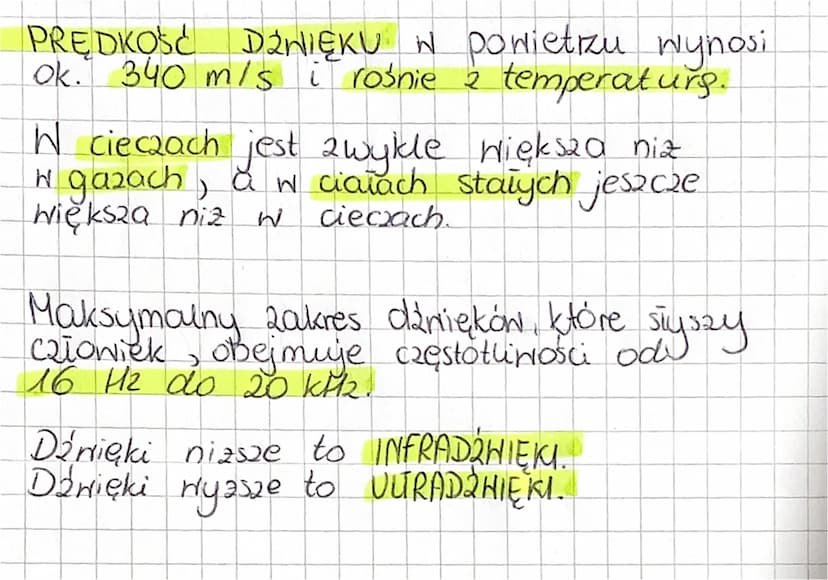 PRĘDKOŚĆ DŹWIĘKU w powietrzu wynosi
ok. 340 m/s i rośnie z temperaturą.
W cieczach jest zwykle większa niż
w gazach, a w ciałach stałych jeszcze
większa niż w cieczach.
Maksymalny zakres dźwięków, które słyszy
człowiek, obejmuje częstotliwości od
16 Hz do 20 kHz.
Dźwięki niższe to INFRADŹWIĘKI.
Dźwięki wyższe to ULTRADŹWIĘKI.